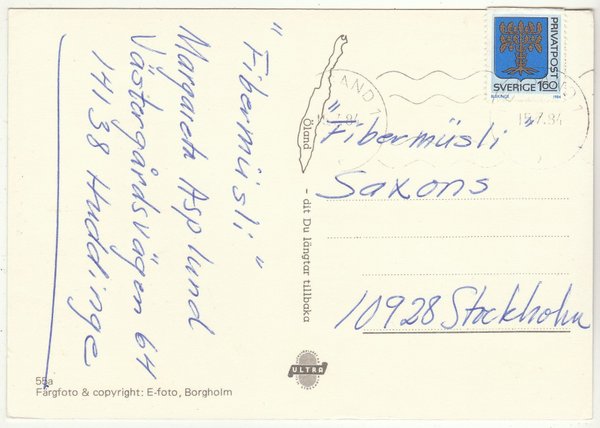 "Fibermüsli"
Margareta Asplund
Västergårdsvägen 64
141 38 Huddinge
Öland - dit Du längtar tillbaka
PRIVATPOST
SVERIGE 160
BLEKINGE 1984
15.7.84
"Fibermüsli"
Saxons
10928 Stockholm
ULTRA
55a
Färgfoto & copyright: E-foto, Borgholm